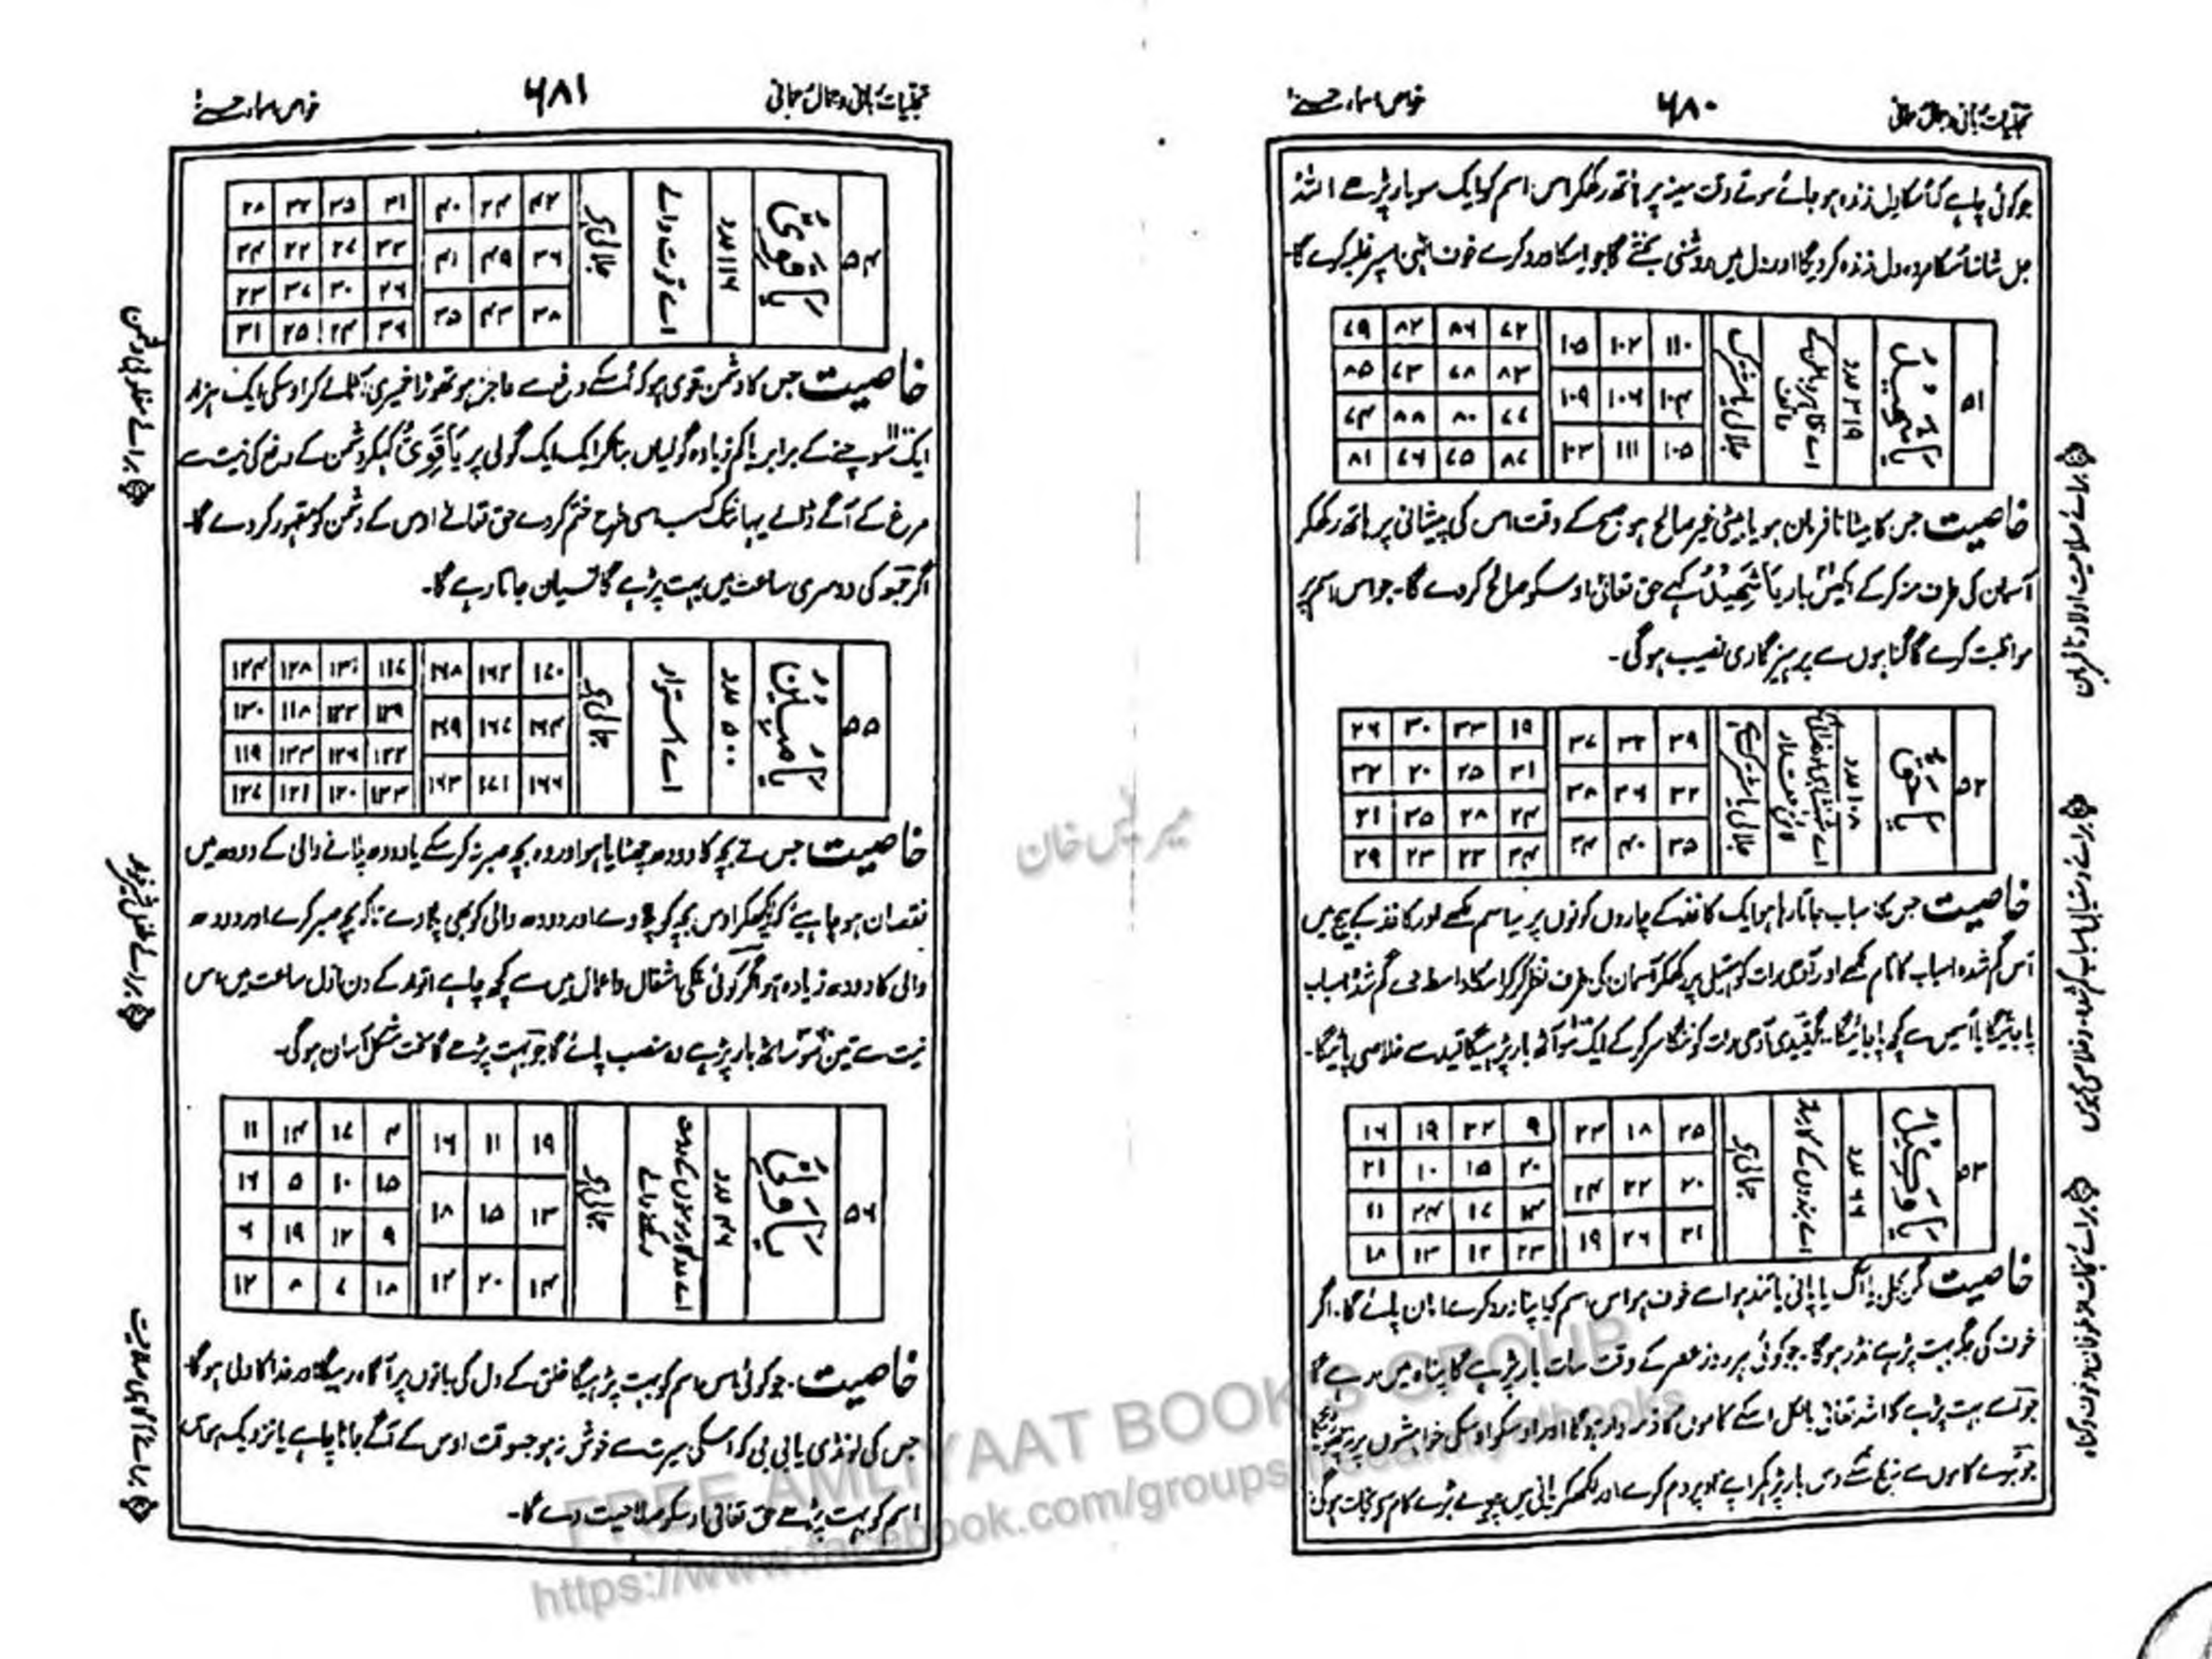 خواص اسماء حسنیٰ
۶۸۰
جو کوئی چاہے کہ اسکا دل زندہ ہو جائے سوتے وقت سینہ پر ہاتھ رکھکر اس اسم کو ایک سو بار پڑھے اللہ
جل شانہ اسکا مردہ دل زندہ کر دیگا اور دل میں روشنی بخشے گا جو اسکا ورد کرے خوف الٰہی اسپر غلبہ کرے گا۔
۵۱
یَا شَہِیْدُ
۳۱۹ عدد
اے ظاہر و باطن کے
جلالی یا مشترک
۱۱۰ ۱۰۲ ۱۰۵
۱۰۹ ۱۰۶
۱۰۵ ۱۱۱
۷۲ ۸۶ ۸۲ ۷۹
۸۳ ۷۸ ۷۳ ۸۵
۷۷ ۸۰ ۸۸ ۷۴
۸۷ ۷۵ ۷۶ ۸۱
خاصیت جس کا بیٹا نافرمان ہو یا بیٹی غیر صالح ہو صبح کے وقت اس کی پیشانی پر ہاتھ رکھکر
آسمان کی طرف منہ کر کے اکیس بار یَا شَہِیْدُ کہے حق تعالیٰ اوسکو صالح کر دے گا۔ جو اس اسم پر
مواظبت کرے گا گناہوں سے پرہیز گاری نصیب ہوگی۔
برائے صلاحیت اولاد نافرمان
۵۲
یَا حَقُّ
۱۰۸ عدد
جلالی یا مشترک ہے
۳۹ ۳۲ ۳۷
۳۳ ۳۶ ۳۸
۳۵ ۴۰ ۳۴
۱۹ ۳۳ ۳۰ ۲۶
۳۱ ۲۵ ۲۰ ۳۲
۲۴ ۲۸ ۳۵ ۲۱
۳۴ ۲۲ ۲۳ ۲۹
خاصیت جس کا اسباب جاتا رہا ہو ایک کاغذ کے چاروں کونوں پر یہ اسم لکھے اور کاغذ کے بیچ میں
اس گم شدہ اسباب کا نام لکھے اور آدھی رات کو ہتیلی پر رکھکر آسمان کی طرف نظر کر کر اسکا واسطہ دے گم شدہ اسباب
پا جائیگا یا اسمیں سے کچھ پا جائیگا۔ اگر قیدی آدھی رات کو ننگا سر کر کے ایک سو آٹھ بار پڑھیگا قید سے خلاصی پائیگا۔
برائے دستیابی اسباب گم شدہ و خلاصی محبوس
۵۳
یَا وَکِیْلُ
۶۶ عدد
اے بندوں کے کارساز
جمالی ہے
۲۵ ۱۸ ۲۳
۲۰ ۲۲ ۲۴
۲۱ ۲۶ ۱۹
۹ ۲۲ ۱۹ ۱۶
۲۰ ۱۵ ۱۰ ۲۱
۱۷ ۲۴ ۱۱
۲۳ ۱۲ ۱۳ ۱۸
خاصیت گر بجلی یا آگ یا پانی یا تند ہوا سے خوف ہو اس اسم کو اپنا ورد کرے امان پائے گا۔ اگر
خوف کی جگہ بہت پڑھے نڈر ہوگا۔ جو کوئی ہر روز عصر کے وقت سات بار پڑھے گا پناہ میں رہے گا
جو اسے بہت پڑھے گا اللہ تعالیٰ بالکل اسکے کاموں کا ذمہ دار ہوگا اور اوسکو اوسکی خواہشوں پر
جو برے کاموں سے دس بار پڑھکر اپنے اوپر دم کرے اور لکھکر پانی میں برے کام
خواص اسماء حسنیٰ
۶۸۱
۵۴
یَا قَوِیُّ
۱۱۶ عدد
اے قوت والے
جلالی ہے
۴۲ ۳۴ ۴۰
۳۶ ۳۹ ۴۱
۳۸ ۴۳ ۳۵
۲۱ ۳۵ ۳۲ ۲۸
۳۳ ۲۷ ۲۲ ۳۴
۲۶ ۳۰ ۳۷ ۲۳
۳۶ ۲۴ ۲۵ ۳۱
خاصیت جس کا دشمن قوی ہو کہ اسکے دفع سے عاجز ہو تھوڑا خمیری آٹا لے کر اوسکی ایک ہزار
ایک سو چنے کے برابر یا کم زیادہ گولیاں بنا کر ایک ایک گولی پر یَا قَوِیُّ کہکر دشمن کے دفع کی نیت سے
مرغ کے آگے ڈالے یہانتک کہ سب اسی طرح ختم کر دے حق تعالےٰ اوس کے دشمن کو مقہور کر دے گا۔
اگر جمعہ کی دوسری ساعت میں بہت پڑھے گا نسیان جاتا رہے گا۔
برائے مغلوبی دشمن
۵۵
یَا مَتِیْنُ
۵۰۰ عدد
اے استوار
جمالی ہے
۱۷۰ ۱۶۲ ۱۶۸
۱۶۴ ۱۶۷ ۱۶۹
۱۶۶ ۱۷۱ ۱۶۳
۱۱۷ ۱۳۱ ۱۲۸ ۱۲۴
۱۲۹ ۱۲۳ ۱۱۸ ۱۳۰
۱۲۲ ۱۲۶ ۱۳۳ ۱۱۹
۱۳۲ ۱۲۰ ۱۲۱ ۱۲۷
خاصیت جس نے بچہ کا دودھ چھٹایا ہو اور وہ بچہ صبر نہ کر سکے یا دودھ پلانے والی کے دودھ میں
نقصان ہو چاہیے کہ لکھکر اوس بچہ کو پلا دے اور دودھ والی کو بھی پلا دے تاکہ بچہ صبر کرے اور دودھ
والی کا دودھ زیادہ ہو اگر کوئی ملکی اشغال و اعمال میں سے کچھ چاہے اتوار کے دن اول ساعت میں اس
نیت سے تین سو ساٹھ بار پڑھے وہ منصب پائے گا جو بہت پڑھے گا سخت مشکل آسان ہوگی۔
برائے طفل شیرخوار
۵۶
یَا وَلِیُّ
۴۶ عدد
جمالی ہے
۱۹ ۱۱ ۱۶
۱۳ ۱۵ ۱۸
۱۴ ۲۰ ۱۲
۴ ۱۷ ۱۴ ۱۱
۱۵ ۱۰ ۵ ۱۶
۹ ۱۲ ۱۹ ۶
۱۸ ۷ ۸ ۱۳
خاصیت۔ جو کوئی اس اسم کو بہت پڑھیگا خلق کے دل کی باتوں پر آگاہ رہیگا اور خدا کا ولی ہوگا
جس کی لونڈی یا بی بی کہ اسکی سیرت سے خوش نہ ہو جسوقت اوس کے آگے جانا چاہے یا نزدیک ہی اس
اسم کو بہت پڑھے حق تعالیٰ اوسکو صلاحیت دے گا۔
میر لیس خان
FREE AMLIYAAT BOOKS GROUP
https://www.facebook.com/groups/freeamliyatbooks